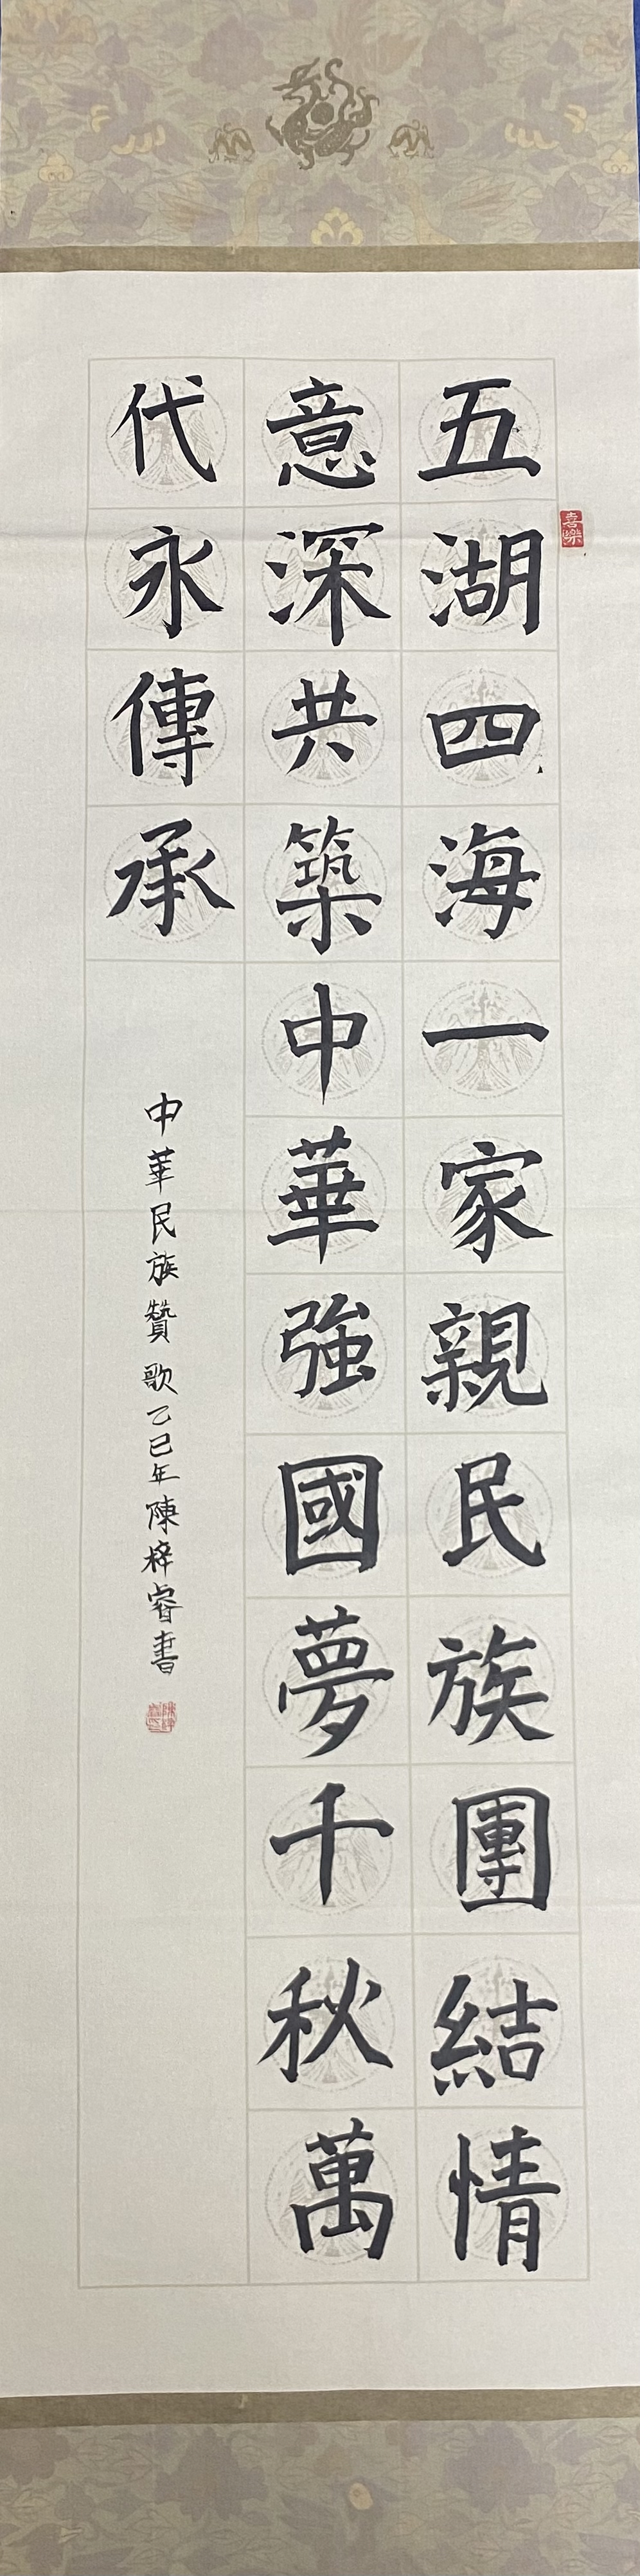 五湖四海一家親民族團結情
意深共築中華強國夢千秋萬
代永傳承
中華民族贊歌乙巳年陳梓睿書
喜樂